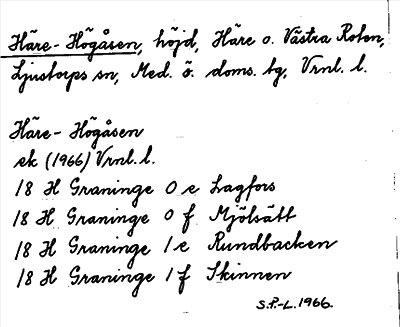 Häre-Högåsen, höjd, Häre o. Västra Roten,
Ljustorps sn, Med. ö. doms. tg, Vrnl. l.
Häre-Högåsen
ek (1966) Vrnl. l.
18 H Graninge 0 e Lagfors
18 H Graninge 0 f Mjölsätt
18 H Graninge 1 e Rundbacken
18 H Graninge 1 f Skinnen
S.P.-L. 1966.